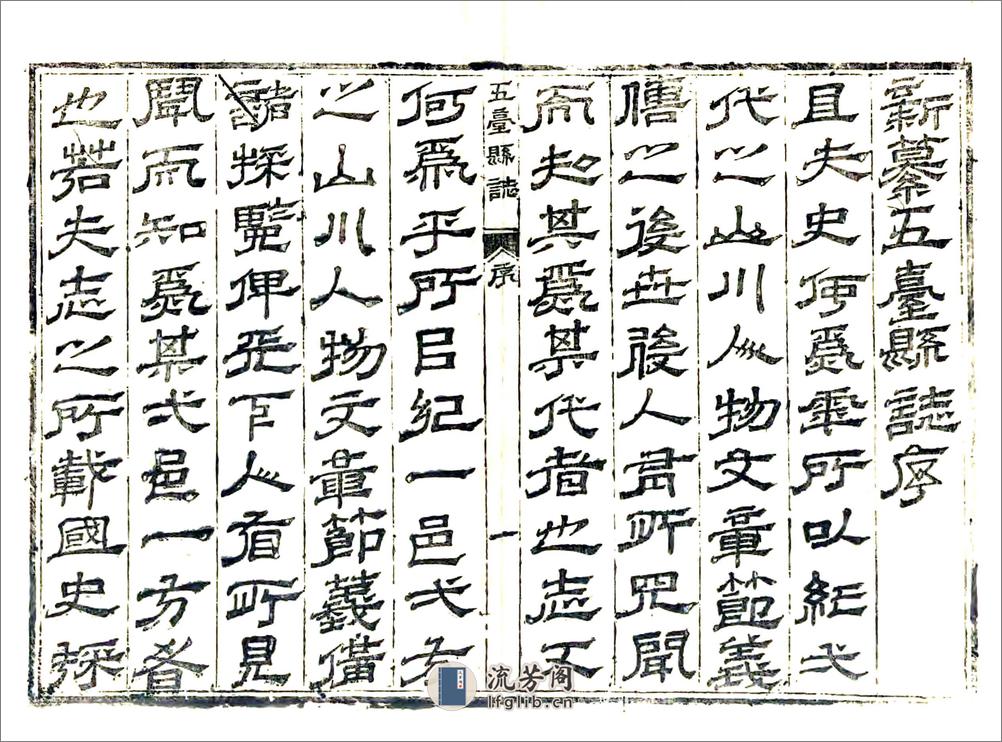 新纂五臺縣誌序
且夫史何爲乎所以紀弌
代之山川人物文章節義
傳之後世後人有所見聞
而知其爲某代者也志又
五臺縣誌 序 一
何爲乎所㠯紀一邑弌方
之山川人物文章節義備
諸採覽俾天下人有所見
聞而知爲某弌邑一方者
也若夫志之所載國史採
流芳阁
lfglib.cn